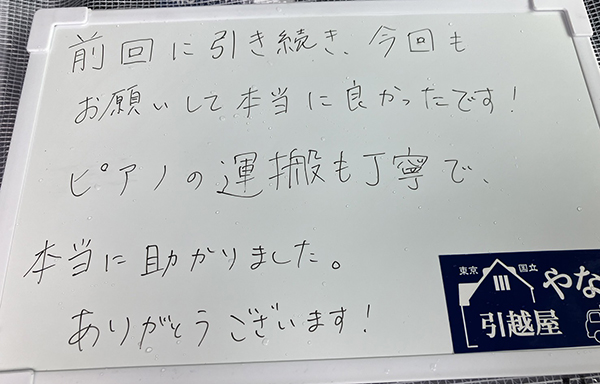 前回に引き続き、今回も
お願いして本当に良かったです!
ピアノの運搬も丁寧で、
本当に助かりました。
ありがとうございます!
東京 国立
やな
引越屋